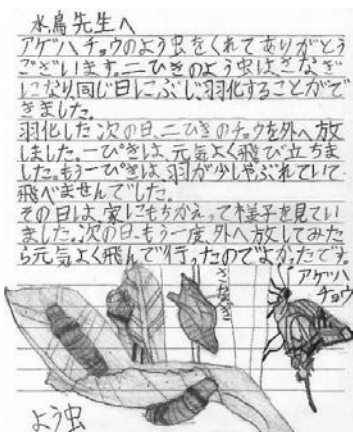 水鳥先生へ
アゲハチョウのよう虫をくれてありがとう
ございます。二ひきのよう虫は、さなぎ
になり同じ日にぶじ、羽化することがで
きました。
羽化した次の日、二ひきのチョウを外へ放
しました。一ぴきは、元気よく飛び立ちま
した。もう一ぴきは、羽が少しやぶれていて
飛べませんでした。
その日は、家にもちかえって様子を見てい
ました。次の日、もう一度、外へ放してみた
ら元気よく飛んで行ったのでよかったです。
さなぎ
アゲハ
チョウ
よう虫